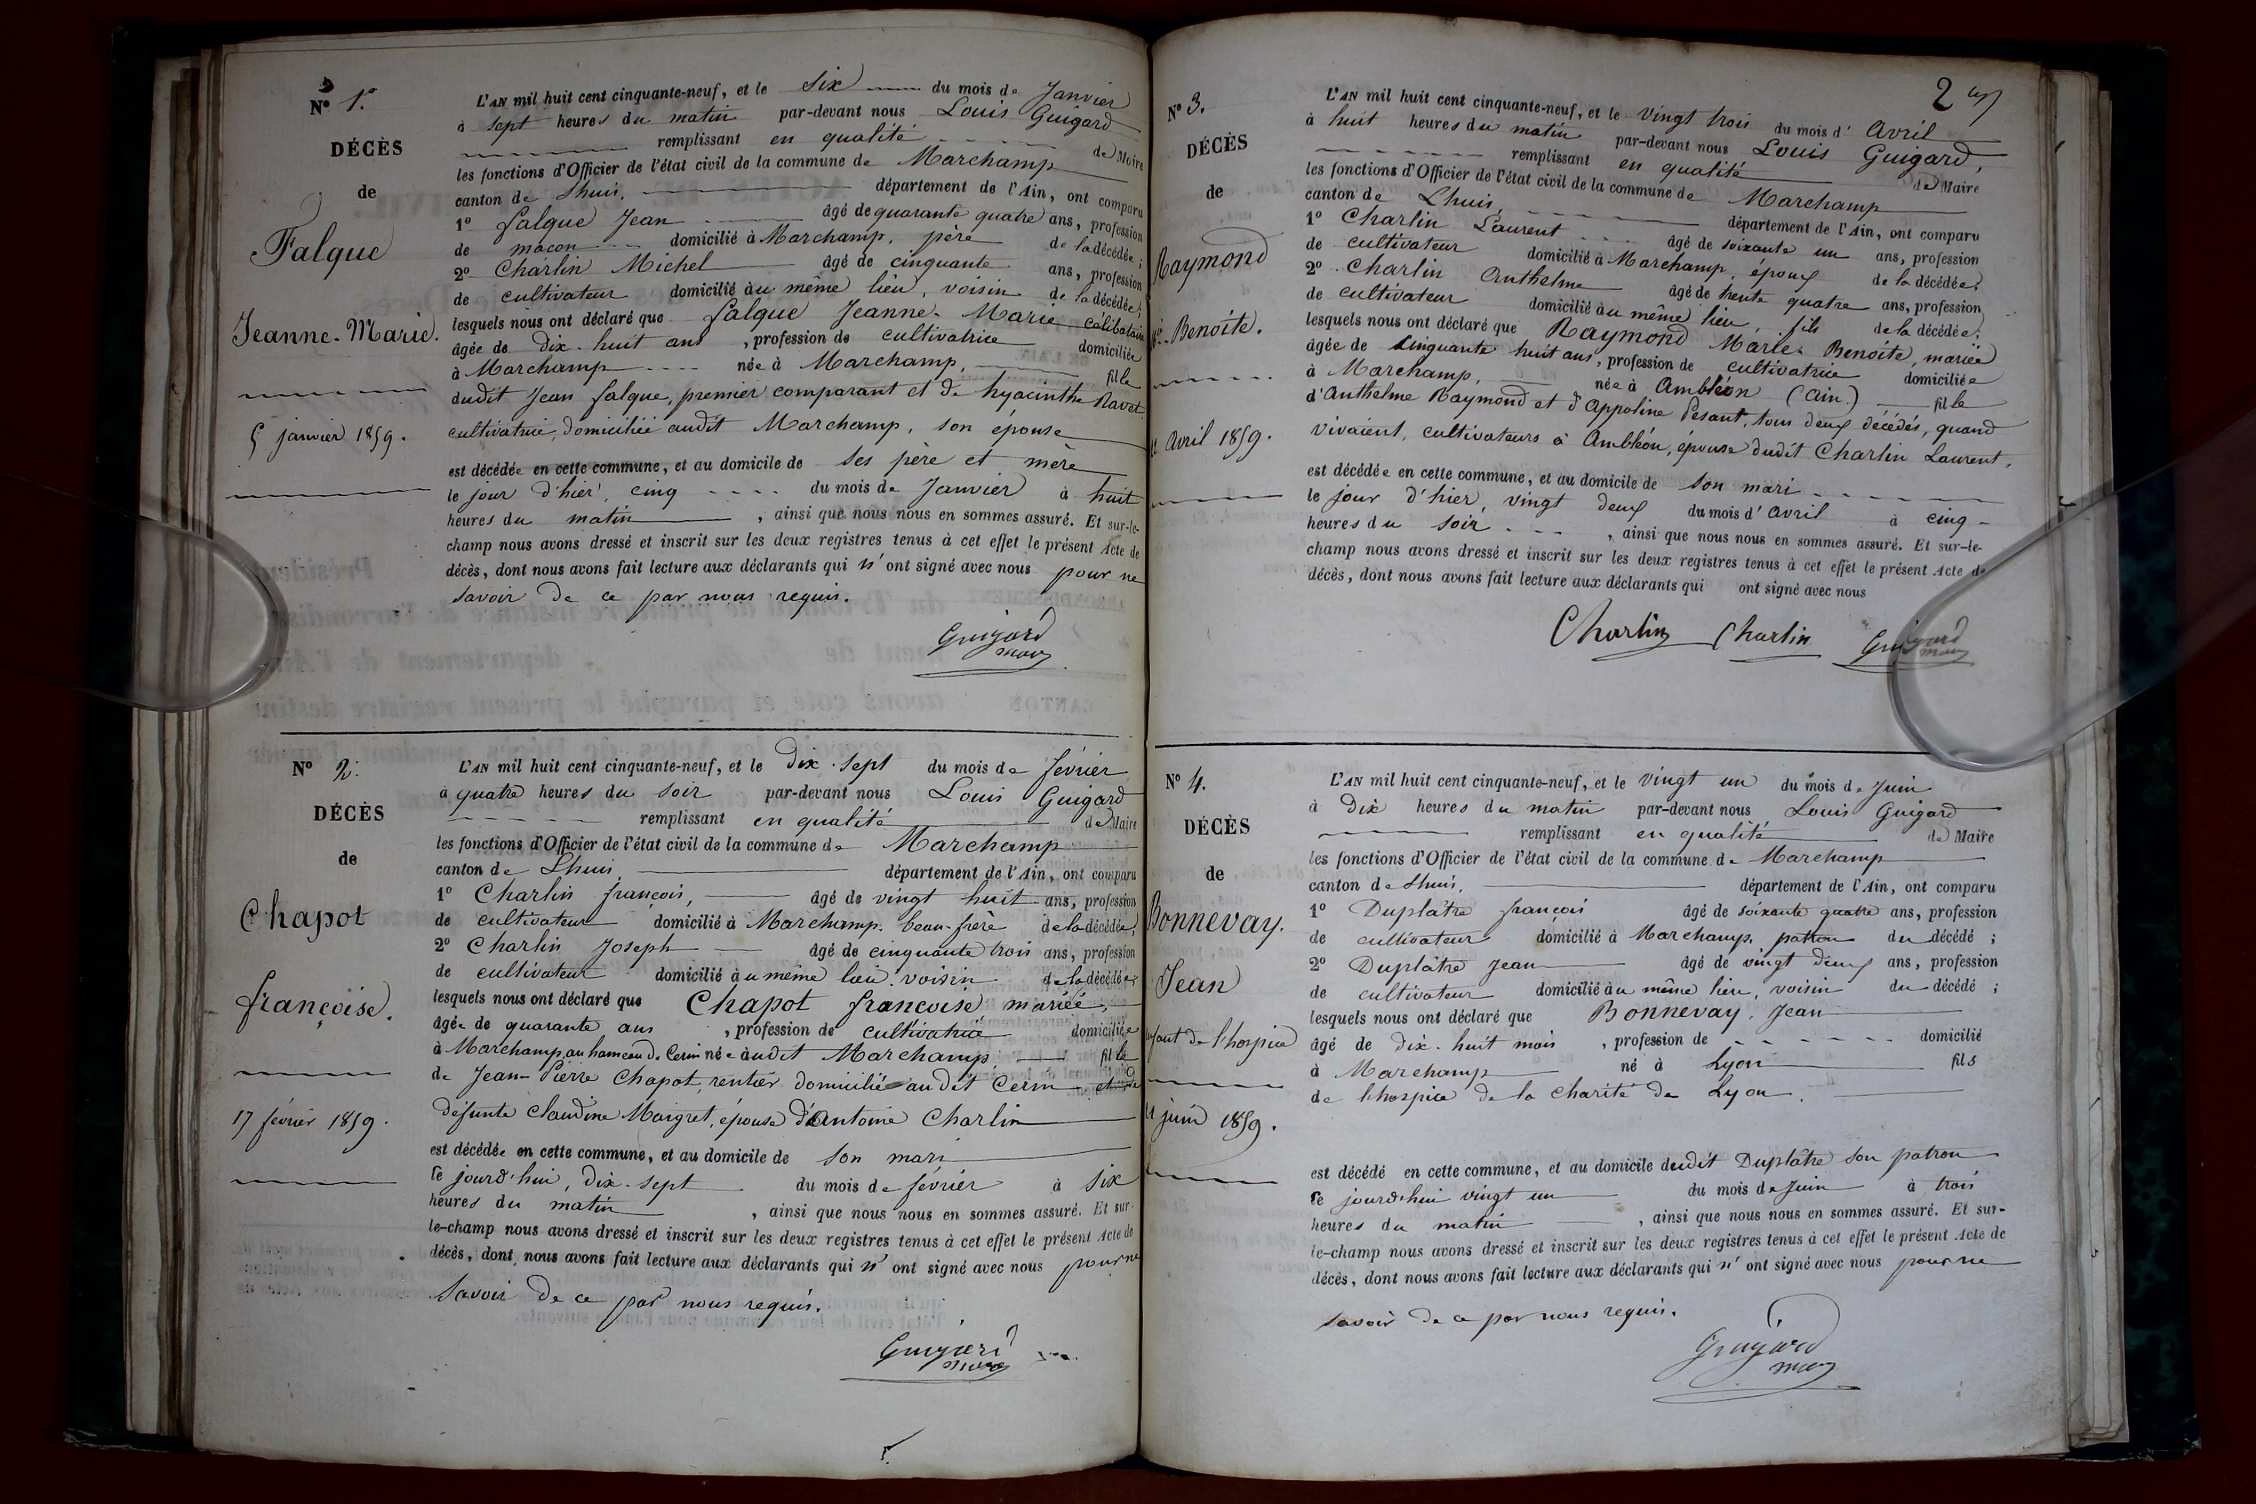 N° 1.er
DÉCÈS
de
Falque
Jeanne-Marie.
5 janvier 1859.
L'AN mil huit cent cinquante-neuf, et le Six du mois de Janvier
à sept heures du matin par-devant nous Louis Guigard
remplissant en qualité de Maire
les fonctions d'Officier de l'état civil de la commune de Marchamp
canton de Lhuis, département de l'Ain, ont comparu
1° falque Jean âgé de quarante quatre ans, profession
de maçon domicilié à Marchamp, père de la décédée;
2° Charlin Michel âgé de cinquante ans, profession
de cultivateur domicilié au même lieu, voisin de la décédée;
lesquels nous ont déclaré que falque Jeanne-Marie célibataire
âgée de dix-huit ans, profession de cultivatrice domiciliée
à Marchamp née à Marchamp, fille
dudit Jean falque, premier comparant et de hyacinthe Ravet
cultivatrice, domiciliée audit Marchamp, son épouse
est décédée en cette commune, et au domicile de ses père et mère
le jour d'hier, cinq du mois de Janvier à huit
heures du matin, ainsi que nous nous en sommes assuré. Et sur-le-
champ nous avons dressé et inscrit sur les deux registres tenus à cet effet le présent Acte de
décès, dont nous avons fait lecture aux déclarants qui n'ont signé avec nous pour ne
savoir de ce par nous requis.
Guigard
maire
N° 2.
DÉCÈS
de
Chapot
françoise.
17 février 1859.
L'AN mil huit cent cinquante-neuf, et le dix-sept du mois de février
à quatre heures du soir par-devant nous Louis Guigard
remplissant en qualité de Maire
les fonctions d'Officier de l'état civil de la commune de Marchamp
canton de Lhuis, département de l'Ain, ont comparu
1° Charlin françois, âgé de vingt huit ans, profession
de cultivateur domicilié à Marchamp, beau-frère de la décédée;
2° Charlin Joseph âgé de cinquante trois ans, profession
de cultivateur domicilié au même lieu, voisin de la décédée;
lesquels nous ont déclaré que Chapot françoise mariée,
âgée de quarante ans, profession de cultivatrice domiciliée
à Marchamp, au hameau de Cerin née audit Marchamp fille
de Jean-Pierre Chapot, rentier domicilié audit Cerin et de
défunte Claudine Maigret, épouse d'Antoine Charlin
est décédée en cette commune, et au domicile de son mari
ce jourd'hui, dix-sept du mois de février à six
heures du matin, ainsi que nous nous en sommes assuré. Et sur-
le-champ nous avons dressé et inscrit sur les deux registres tenus à cet effet le présent Acte de
décès, dont nous avons fait lecture aux déclarants qui n'ont signé avec nous pour ne
savoir de ce par nous requis.
Guigard
maire
2
N° 3.
DÉCÈS
de
Raymond
Benoite.
avril 1859.
L'AN mil huit cent cinquante-neuf, et le vingt trois du mois d'Avril
à huit heures du matin par-devant nous Louis Guigard,
remplissant en qualité de Maire
les fonctions d'Officier de l'état civil de la commune de Marchamp
canton de Lhuis, département de l'Ain, ont comparu
1° Charlin Laurent âgé de soixante un ans, profession
de cultivateur domicilié à Marchamp, époux de la décédée;
2° Charlin Anthelme âgé de trente quatre ans, profession
de cultivateur domicilié au même lieu, fils de la décédée;
lesquels nous ont déclaré que Raymond Marie-Benoite, mariée
âgée de cinquante huit ans, profession de cultivatrice domiciliée
à Marchamp, née à Ambléon (Ain.) fille
d'Anthelme Raymond et d'Appoline Pesant, tous deux décédés, quand
vivaient, cultivateurs à Ambléon, épouse dudit Charlin Laurent,
est décédée en cette commune, et au domicile de son mari
le jour d'hier, vingt deux du mois d'avril à cinq
heures du soir, ainsi que nous nous en sommes assuré. Et sur-le-
champ nous avons dressé et inscrit sur les deux registres tenus à cet effet le présent Acte de
décès, dont nous avons fait lecture aux déclarants qui ont signé avec nous
Charlin Charlin Guigard
maire
N° 4.
DÉCÈS
de
Bonnevay.
Jean
enfant de l'hospice
juin 1859.
L'AN mil huit cent cinquante-neuf, et le vingt un du mois de Juin
à dix heures du matin par-devant nous Louis Guigard
remplissant en qualité de Maire
les fonctions d'Officier de l'état civil de la commune de Marchamp
canton de Lhuis, département de l'Ain, ont comparu
1° Duplâtre françois âgé de soixante quatre ans, profession
de cultivateur domicilié à Marchamp, patron du décédé;
2° Duplâtre Jean âgé de vingt deux ans, profession
de cultivateur domicilié au même lieu, voisin du décédé;
lesquels nous ont déclaré que Bonnevay, Jean
âgé de dix-huit mois, profession de domicilié
à Marchamp né à Lyon fils
de l'hospice de la charité de Lyon.
est décédé en cette commune, et au domicile dudit Duplâtre son patron
ce jourd'hui vingt un du mois de Juin à trois
heures du matin, ainsi que nous nous en sommes assuré. Et sur-
le-champ nous avons dressé et inscrit sur les deux registres tenus à cet effet le présent Acte de
décès, dont nous avons fait lecture aux déclarants qui n'ont signé avec nous pour ne
savoir de ce par nous requis.
Guigard
maire